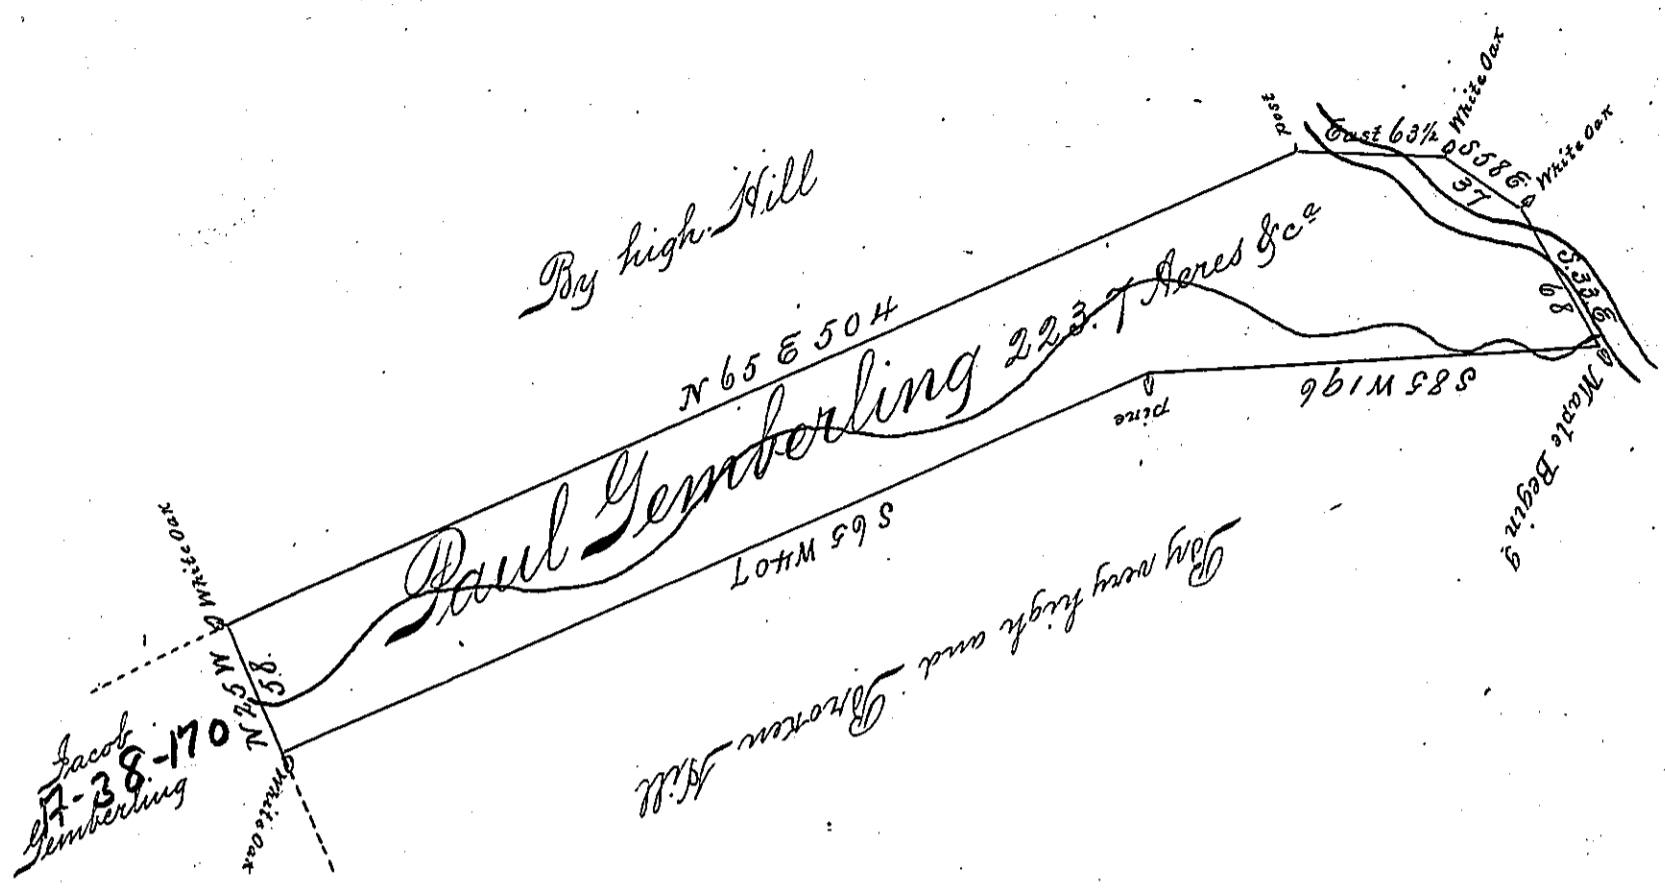 By high Hill
Post
East 63½
White Oak
S58E.
37
White Oak
S.33E
68
Maple Begin g
S85W196
pine
N 65 E 504
Paul Gemberling 223.7 Acres &ca
S 65 W407
By very high and Broken Hill
White Oak
N25W
58.
White Oak
Jacob
A-38-170
Gemberling